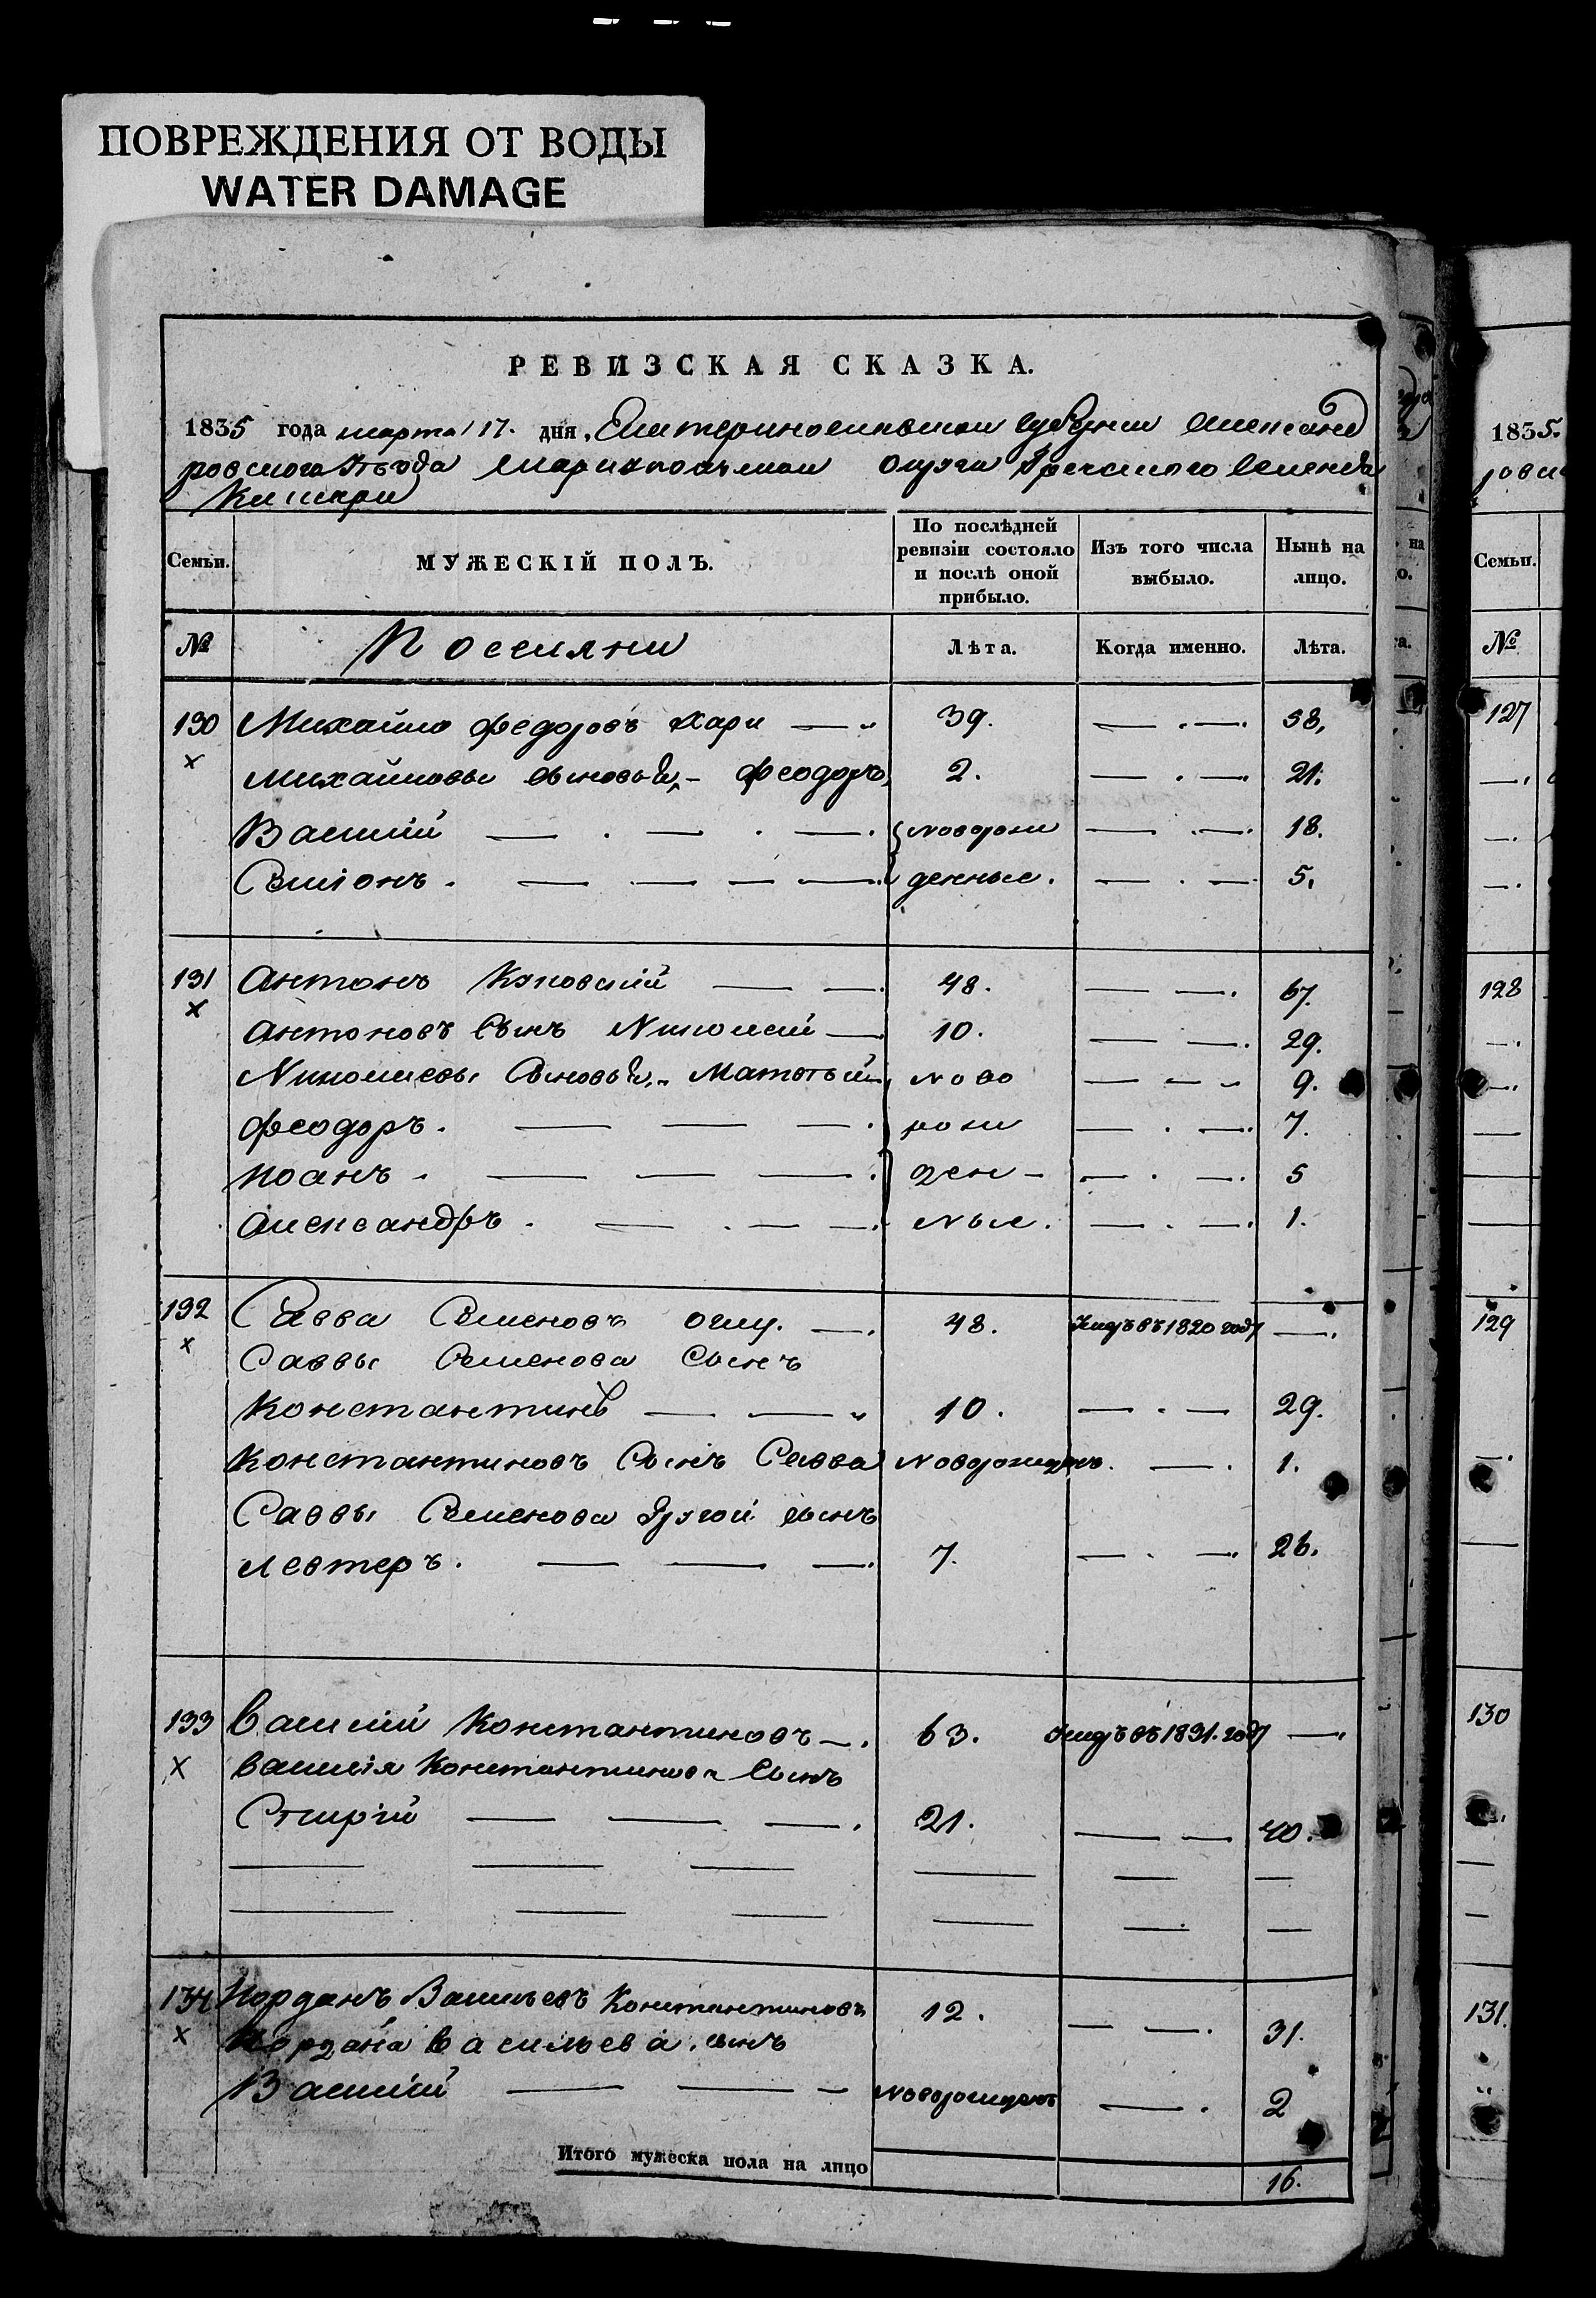 ПОВРЕЖДЕНИЯ ОТ ВОДЫ
WATER DAMAGE
РЕВИЗСКАЯ СКАЗКА.
1835 года марта 17. дня, Екатеринославской губернии Александ
ровского уѣзда Мариупольскаго округа Греческого селенія
Семьи.
МУЖЕСКІЙ ПОЛЪ.
По послѣдней ревизіи состояло и послѣ оной прибыло.
Изъ того числа выбыло.
Нынѣ на лицо.
№ Поселяни Лѣта. Когда именно. Лѣта.
130 Михайло Федоровъ Хари — 39. — . —. 58,
х Михайловы сыновья, - Феодоръ, 2. — . —. 21.
Василій — . — . —. новорож — . —. 18.
Симіонъ. — . — — —. денные. — . — 5.
131 Антонъ Куповскій — —. 48. — —. 67.
х Антоновъ сынъ Николай —. 10. — —. 29.
Николаевы сыновья, Матвѣй ново — — - 9.
Феодоръ. — — —. рож — . —. 7.
Иоанъ. — — —. ден - —. . —. 5
Александръ. — . — —. ные. — . —. 1.
132 Савва Семеновъ —. 48. умеръ въ 1820 году —.
х Саввы Семенова Сынъ
Константинъ — — 10. — . — 29.
Константиновъ Сынъ Савва новорожденъ. — . 1.
Саввы Семенова другой сынъ
Левтеръ. — — —. 7. — . —. 26.
133 Василій Константиновъ —. 63. умеръ въ 1831. году —
х Василія Константинова Сынъ
Спирій — — —. 21. — — 40.
134 Иорданъ Васильевъ Константиновъ 12. — —. 31.
х Иордана Васильева сынъ
Василій — — — новорожденъ — . 2
Итого мужеска пола на лицо 16.
1835.
Семьи.
№
127
128
129
130
131.